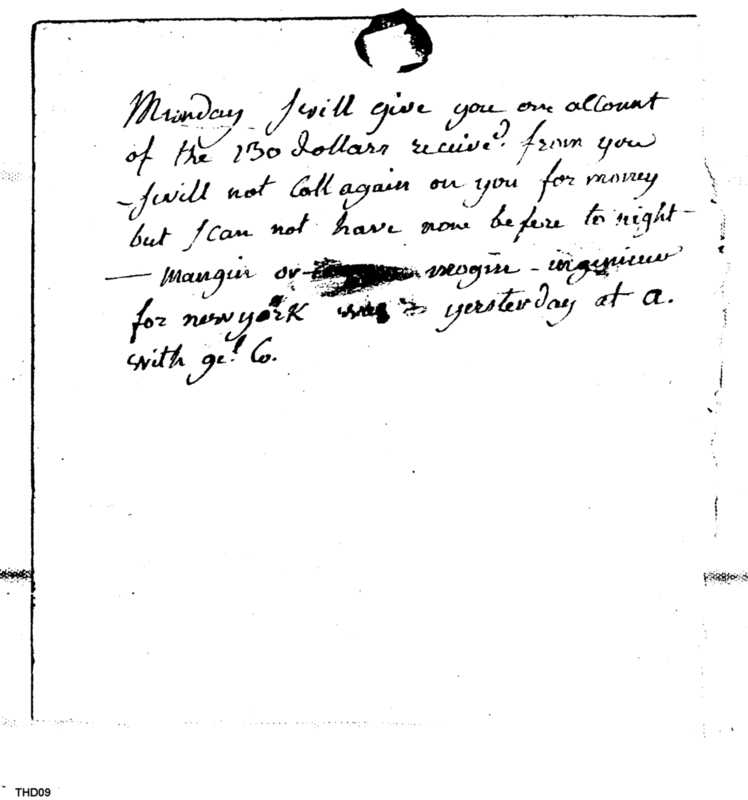 Munday I will give you one account
of the 130 dollars receive.d from you
- I will not Call again on you for money
but I can not have now before to night -
— Mangin or mogin - ingenieur
for new york was yersterday at a.
with ge.l Co.
THD09